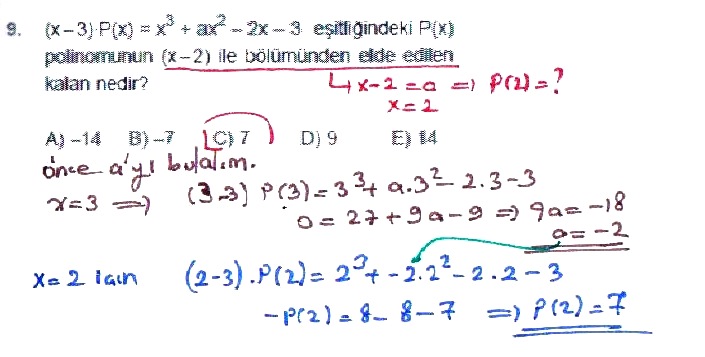 9. (x-3)·P(x) = x³ + ax² - 2x - 3 eşitliğindeki P(x)
polinomunun (x-2) ile bölümünden elde edilen
kalan nedir?
↳ x-2 = 0 => P(2) = ?
x = 2
A) -14 B) -7 C) 7 D) 9 E) 14
önce a'yı bulalım.
x=3 => (3-3) P(3) = 3³ + a.3² - 2.3 - 3
0 = 27 + 9a - 9 => 9a = -18
a = -2
x=2 için (2-3).P(2) = 2³ + -2.2² - 2.2 - 3
-P(2) = 8 - 8 - 7 => P(2) = 7